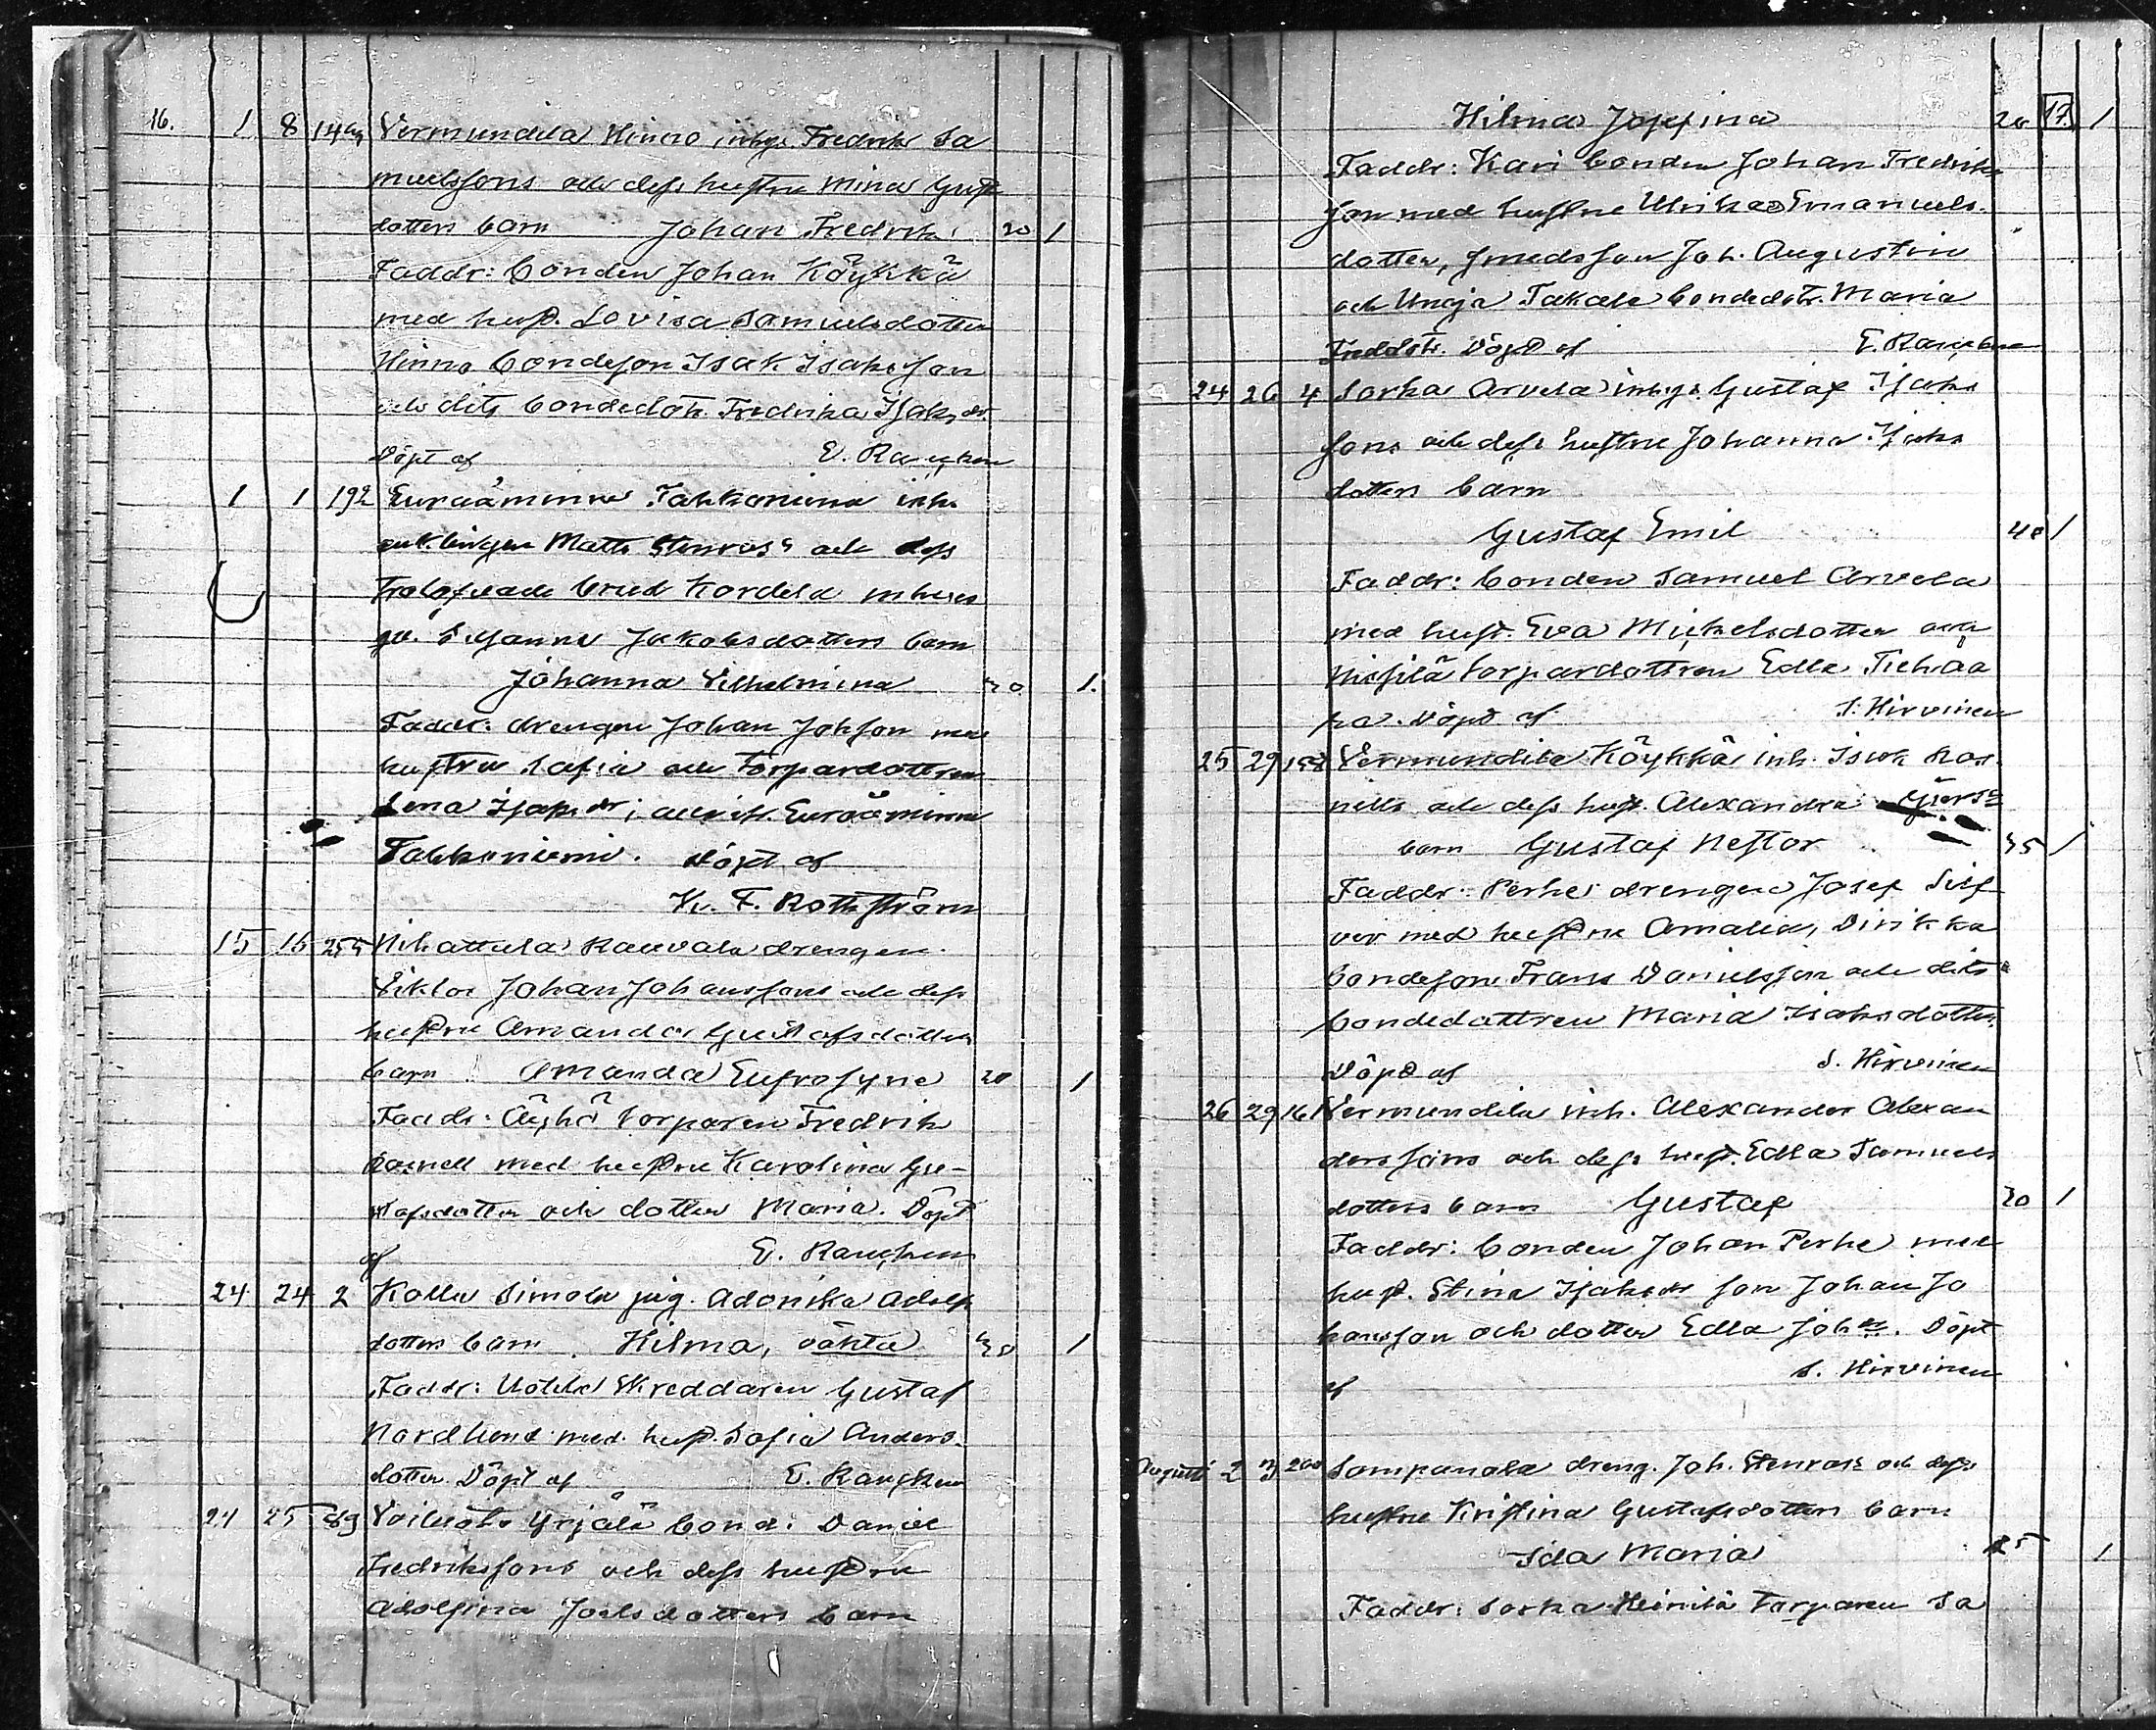 16. 1 8 149 Vermundila Hinno inhys. Fredrik Sa
muelssons och dess hustru Mina Gust
dotters barn Johan Fredrik 20 1
Faddr: bonden Johan Köykkä
med hust. Lovisa Samuelsdotter
Hinno bondeson Isak Isaksson
och dits bondedotr. Fredrika Isaksdr.
Döpt af E. Rauhan
1 1 192 Euraåminne Tahkoniemi inh.
enklingen Matts Stenros's och dess
trolofvade brud Kordela inhyses
qv. Susanna Jakobsdotters barn
Johanna Vilhelmina 30 1.
Faddr: drengen Johan Johsson med
hustru Sofia och torpardottren
Lena Isaksdr; alla ifr. Euraåminne
Tahkoniemi. Döpt af
K. F. Rothström
15 16 255 Nihattula Rauvala drengen
Viktor Johan Johanssons och dess
hustru Amanda Gustafsdotters
barn Amanda Eufrosyne 20 1
Faddr: Äyhö torparen Fredrik
med hustru Karolina Gu-
stafsdotter och dotter Maria. Döpt
af E. Rauhan
24 24 2 Kolla Simola pig. Adonika Adolf
dotters barn. Hilma, oäkta 30 1
Faddr: Uotila Skreddaren Gustaf
Nordlund med hust. Sofia Anders
dotter. Döpt af E. Rauhan
24 25 89 Voiluoto Yrjälä bond. Daniel
Fredrikssons och dess hustru
Adolfina Joelsdotters barn
Hilma Josefina 20 17. 1
Faddr: Kari bonden Johan Fredriks
son med hustru Ulrika Emanuels
dotter, smedsson Joh. Augustin
och Unaja Takala bondedotr. Maria
Freddotr. Döpt af E. Rauhan
24 26 4 Sorka Arvela inhys. Gustaf Isaks
sons och dess hustru Johanna Isaks
dotters barn
Gustaf Emil 40 1
Faddr: bonden Samuel Arvela
med hust. Eva Mickelsdotter och
torpardottren Edla Tiehaa
ra. Döpt af S. Hirvinen
25 29 158 Vermundila Köykkä inh. Isak Ros
nells och dess hust. Alexandra
barn Gustaf Nestor 35 1
Faddr: Perhe drengen Josef Silf
ver med hustru Amalia, Dirikka
bondeson Frans Danielsson och dits
bondedottren Maria Isaksdotter.
Döpt af S. Hirvinen
26 29 161 Vermundila inh. Alexander Alexan
derssons och dess hust. Edla Samuels
dotters barn Gustaf 30 1
Faddr: bonden Johan Perhe med
hust. Stina Isaksdr son Johan Jo
hansson och dotter Edla Johdr. Döpt
af S. Hirvinen
Augusti 2 3 200 Sampanala dreng. Joh. Stenros's och dess
hustru Kristina Gustafsdotters barn
Ida Maria 25 1
Faddr: Sorka Heinilä torparen Sa